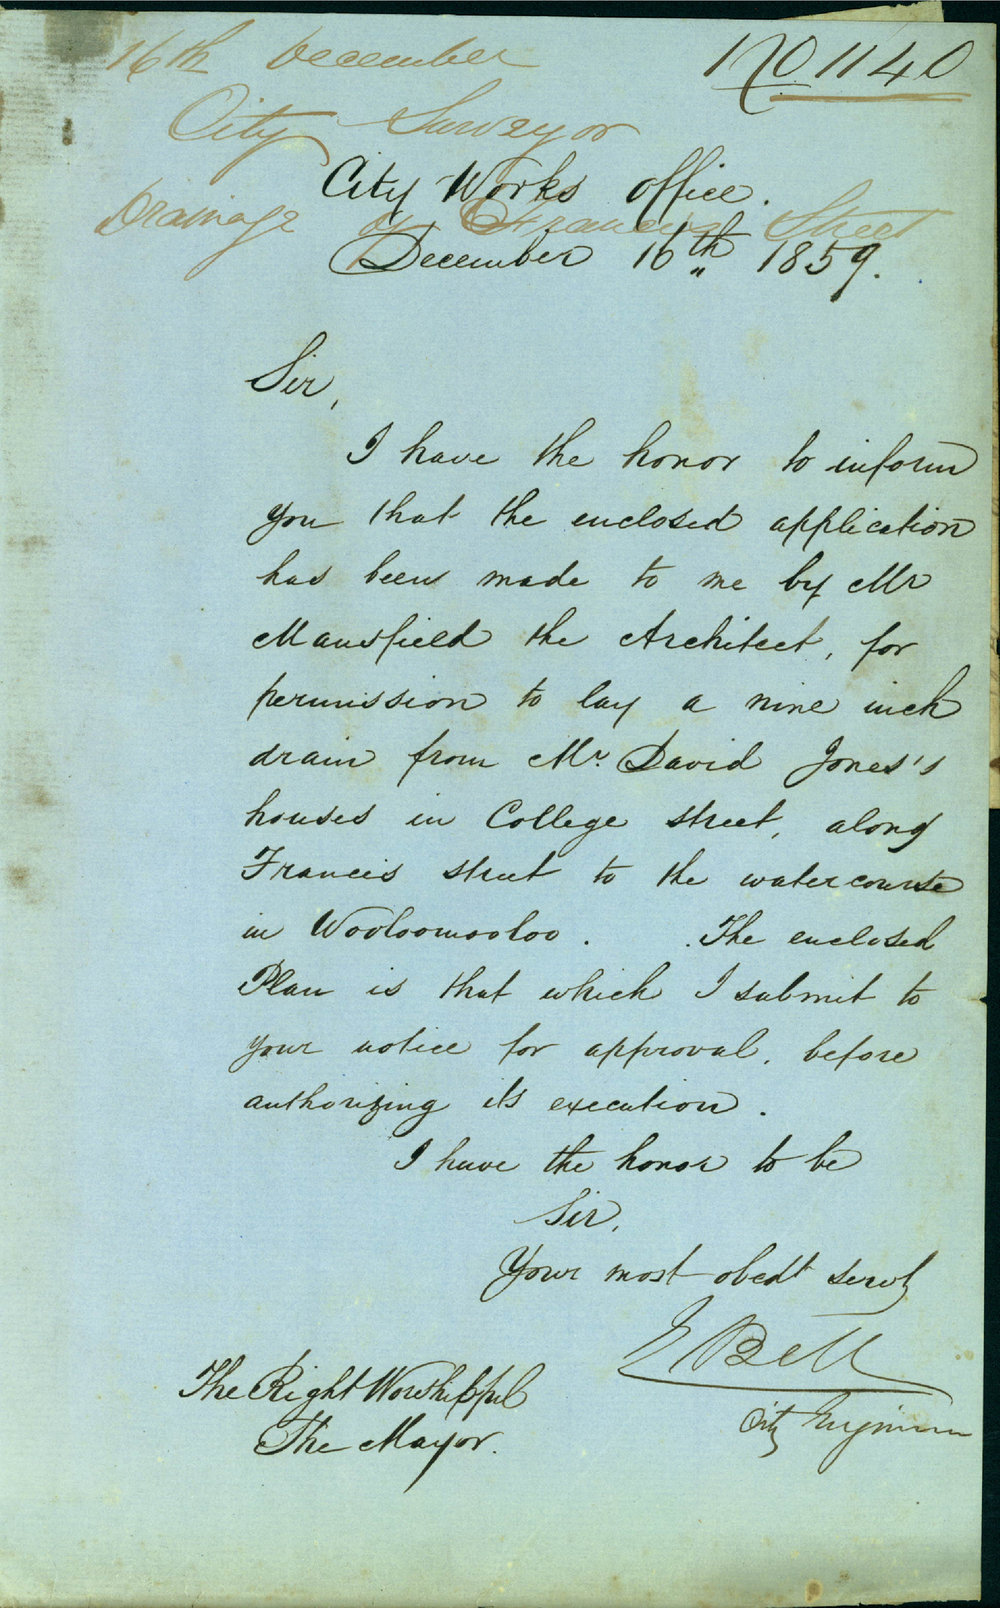 16th December
No 1140
City Surveyor
City Works Office.
Drainage of Francis Street
December 16th 1859.
Sir,
I have the honor to inform
you that the enclosed application
has been made to me by Mr
Mansfield the Architect, for
permission to lay a nine inch
drain from Mr. David Jones's
houses in College street, along
Francis street to the watercourse
in Wooloomooloo. The enclosed
Plan is that which I submit to
your notice for approval, before
authorizing its execution.
I have the honor to be
Sir,
Your most obedt servt
E Bell
City Engineer
The Right Worshipful
The Mayor.